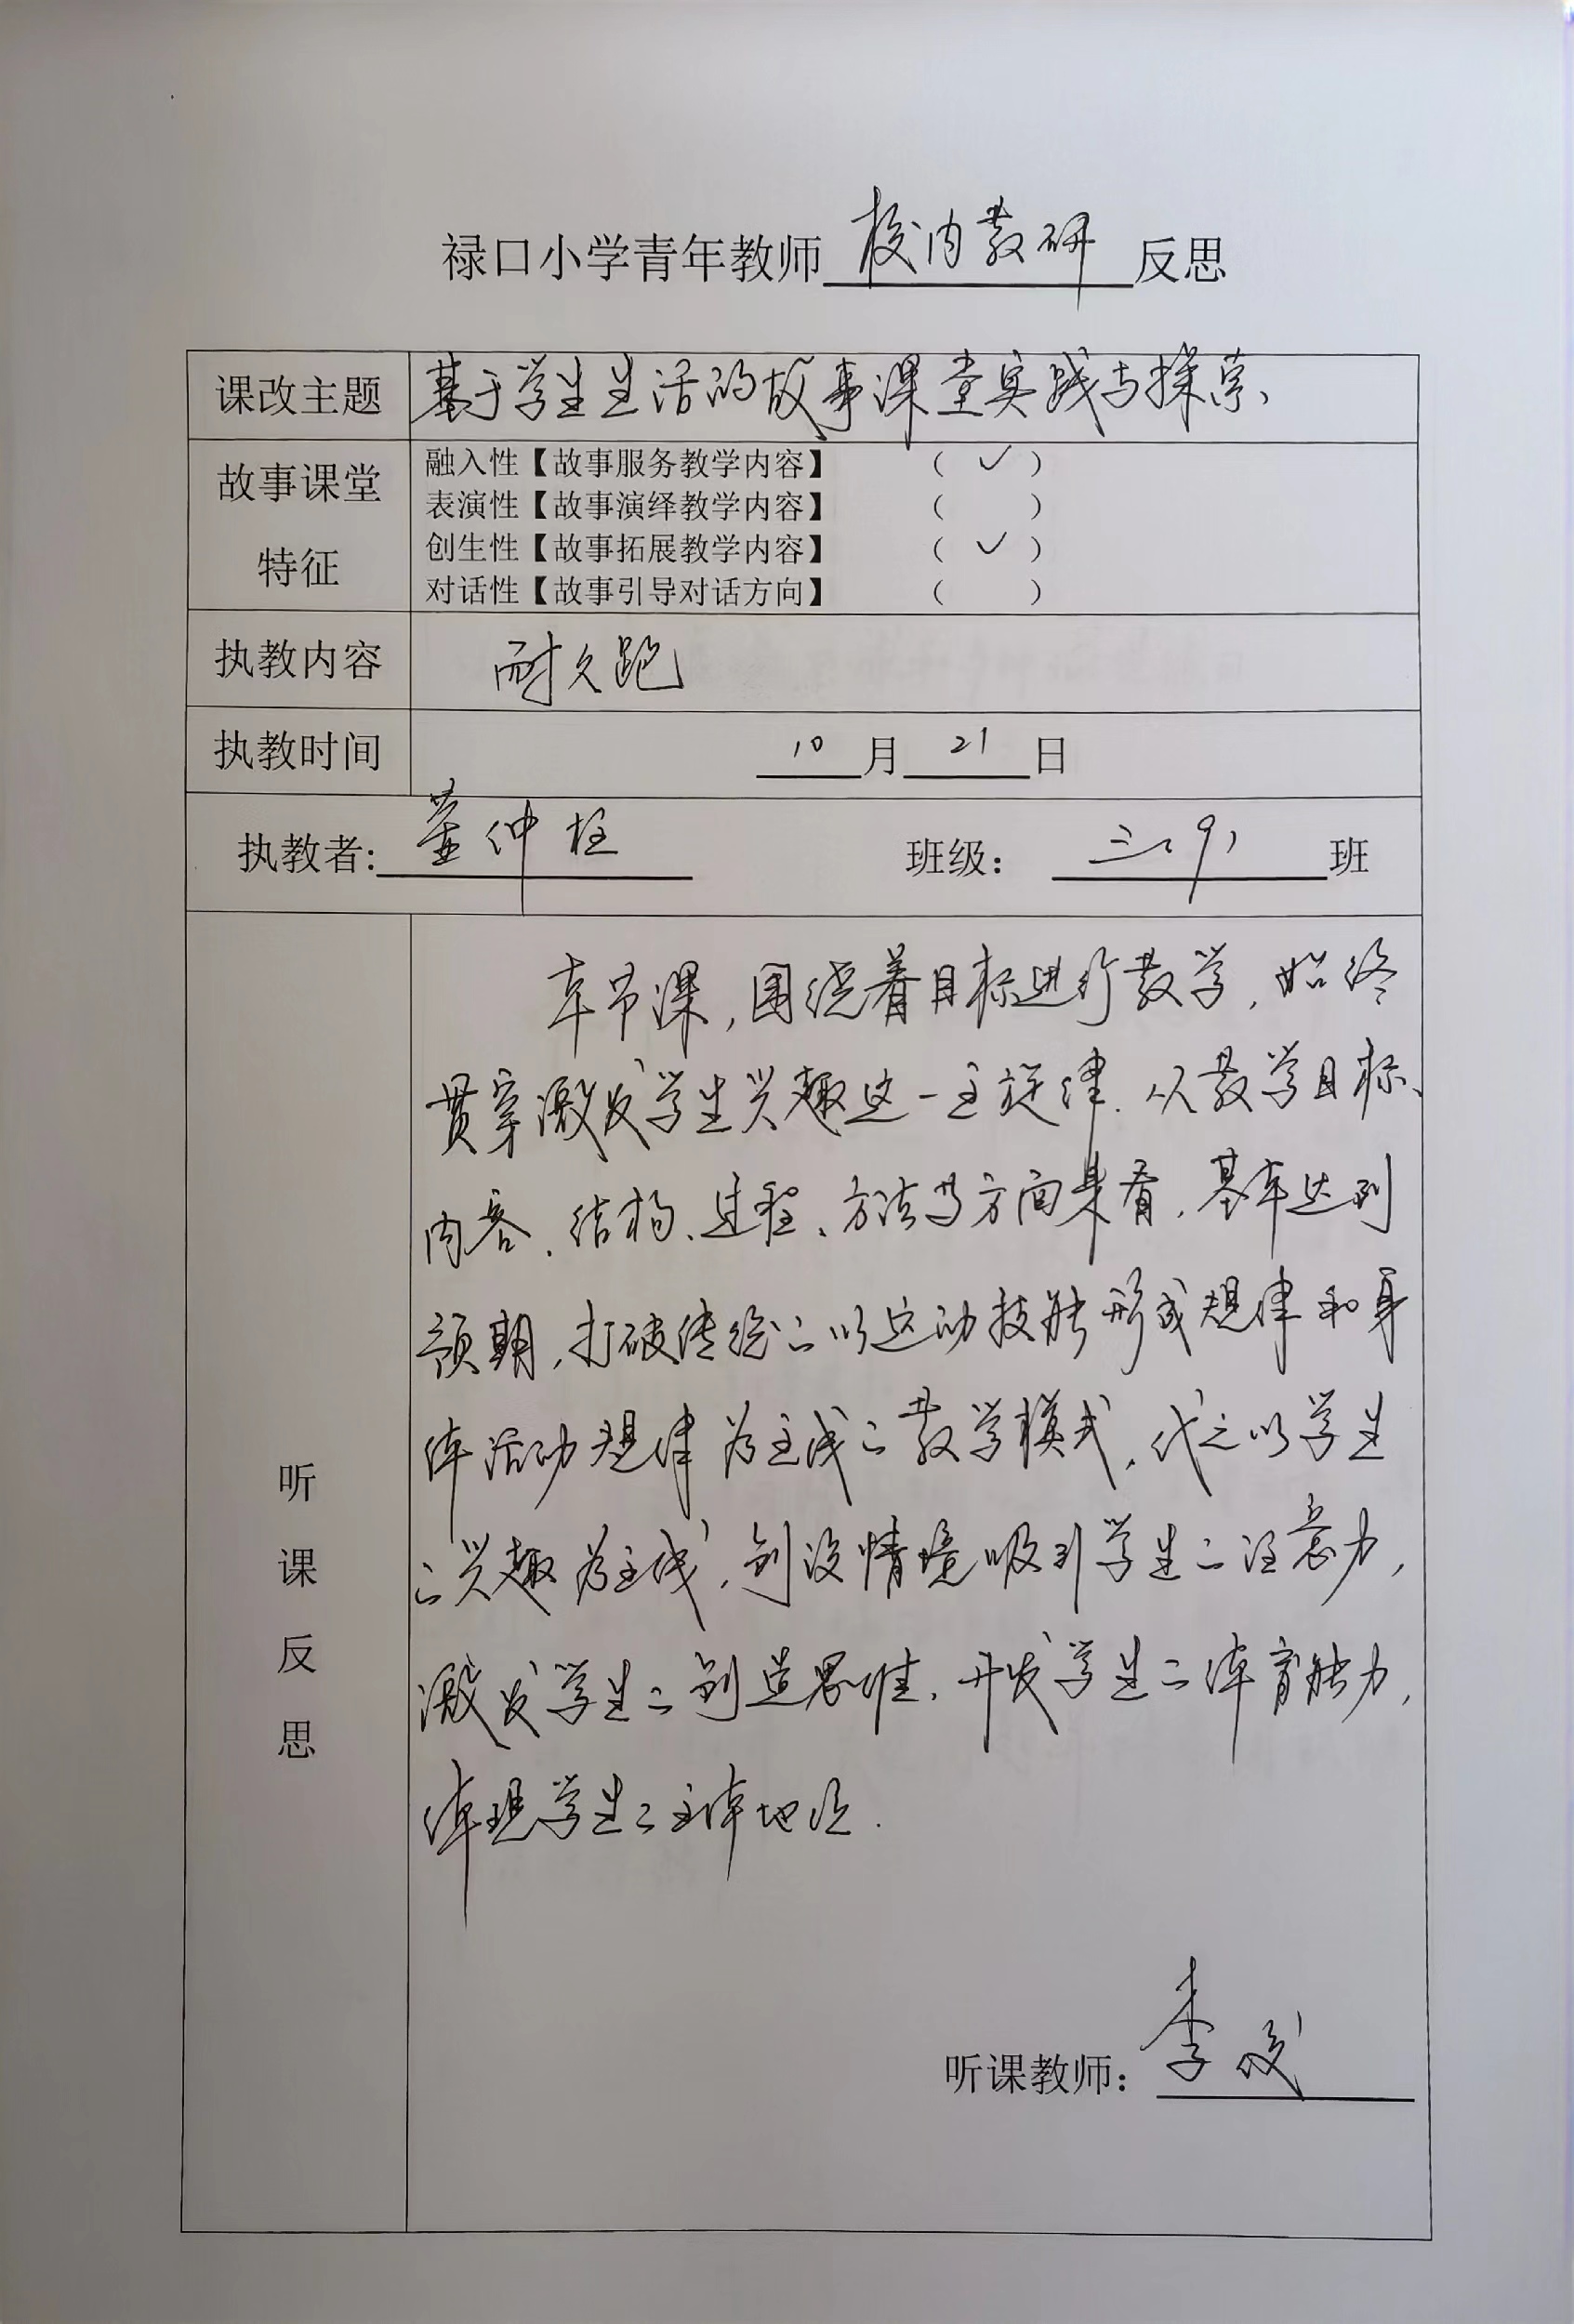 禄口小学青年教师校内教研反思
课改主题 基于学生生活的故事课堂实践与探索、
故事课堂特征
融入性【故事服务教学内容】 （ ✓ ）
表演性【故事演绎教学内容】 （ ）
创生性【故事拓展教学内容】 （ ✓ ）
对话性【故事引导对话方向】 （ ）
执教内容 耐久跑
执教时间 10月21日
执教者: 董仲柱 班级： 三（9） 班
听课反思
本节课，围绕着目标进行教学，始终
贯穿激发学生兴趣这一主旋律．从教学目标、
内容、结构、过程、方法等方面来看，基本达到
预期，打破传统的以运动技能形成规律和身
体活动规律为主线的教学模式，代之以学生
的兴趣为主线，创设情境吸引学生的注意力，
激发学生的创造思维，开发学生的体育能力，
体现学生的主体地位．
听课教师： 李